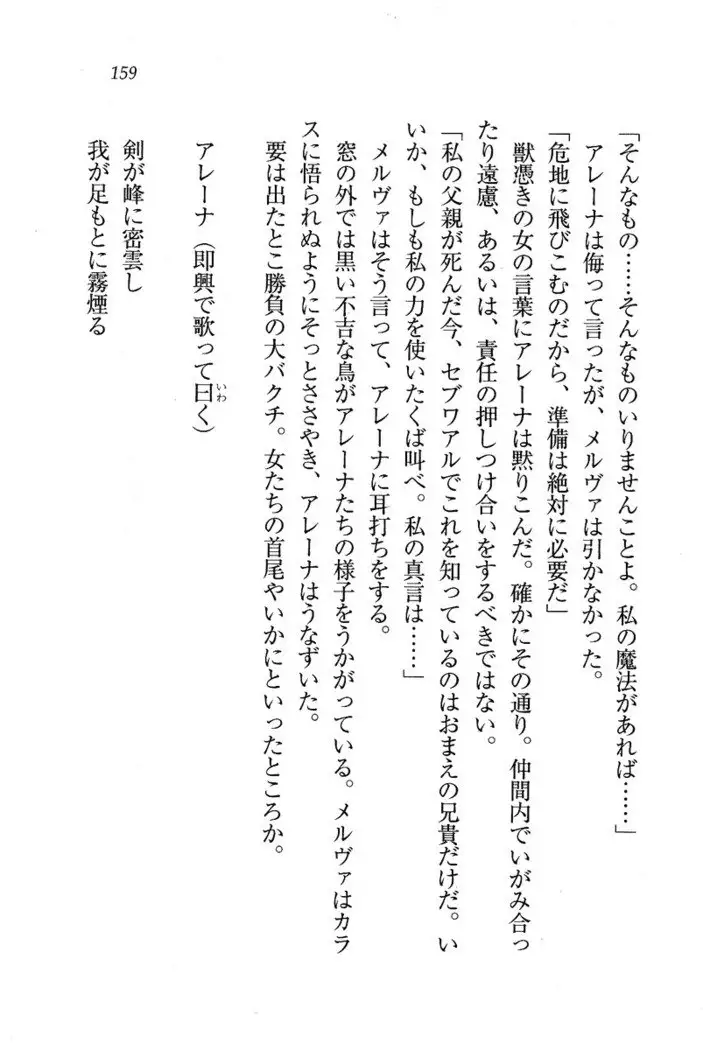 159
「そんなもの……そんなものいりませんことよ。私の魔法があれば……」
アレーナは侮って言ったが、メルヴァは引かなかった。
「危地に飛びこむのだから、準備は絶対に必要だ」
獣憑きの女の言葉にアレーナは黙りこんだ。確かにその通り。仲間内でいがみ合っ
たり遠慮、あるいは、責任の押しつけ合いをするべきではない。
「私の父親が死んだ今、セブワアルでこれを知っているのはおまえの兄貴だけだ。い
いか、もしも私の力を使いたくば叫べ。私の真言は……」
メルヴァはそう言って、アレーナに耳打ちをする。
窓の外では黒い不吉な鳥がアレーナたちの様子をうかがっている。メルヴァはカラ
スに悟られぬようにそっとささやき、アレーナはうなずいた。
要は出たとこ勝負の大バクチ。女たちの首尾やいかにといったところか。
アレーナ（即興で歌って曰く）
いわ
剣が峰に密雲し
我が足もとに霧煙る